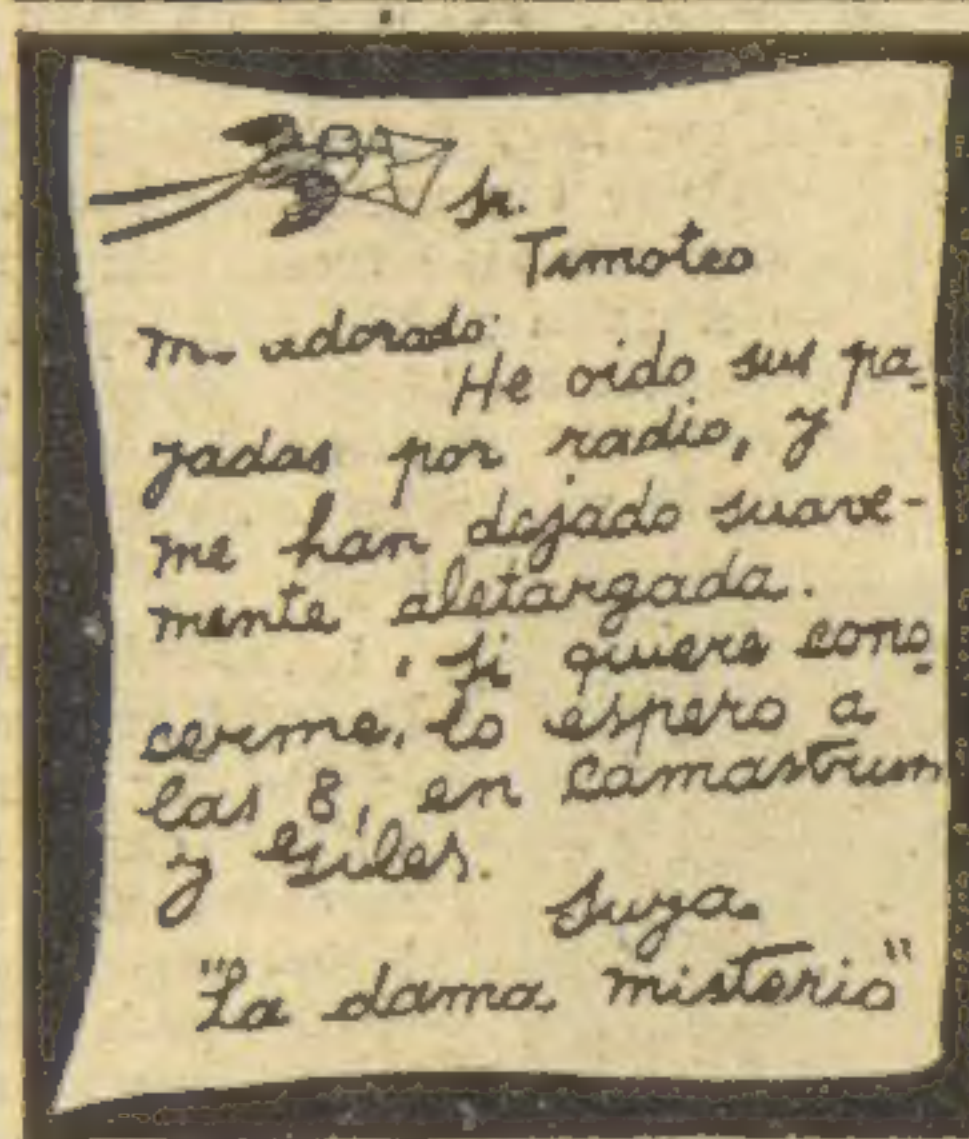 Sr.
Timoteo
Mi adorado:
He oido sus pa-
yadas por radio, y
me han dejado suave-
mente aletargada.
Si quiere cono-
cerme, lo espero a
las 8, en Camastrum
y
Suya
"La dama misterio"